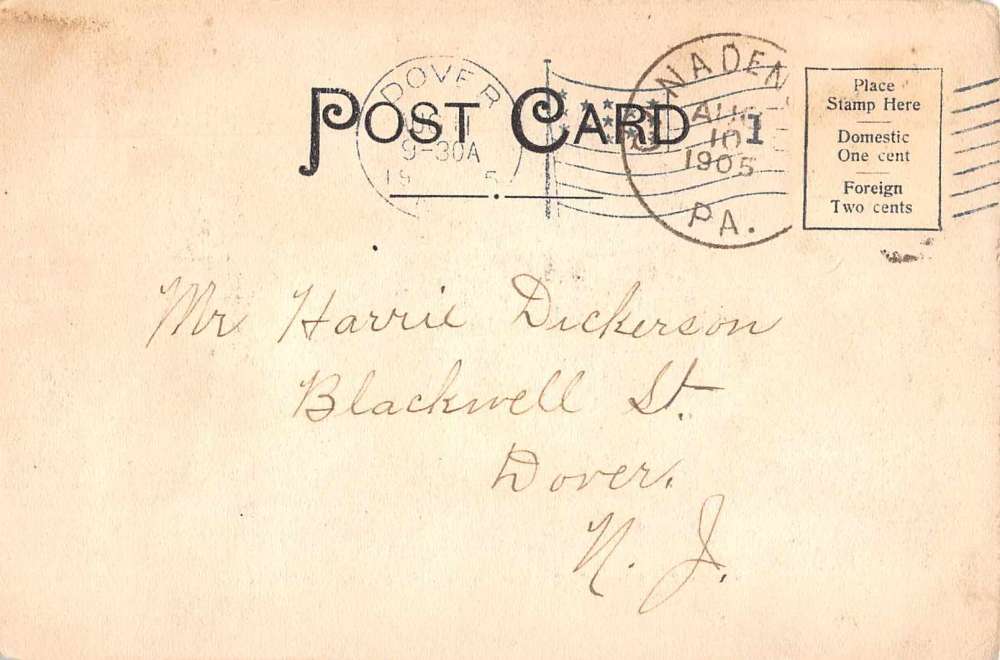 POST CARD
DOVER
9-30A
19 5
NADEN
AUG
10
1905
PA.
1
Place
Stamp Here
Domestic
One cent
Foreign
Two cents
Mr Harrie Dickerson
Blackwell St.
Dover.
N. J.